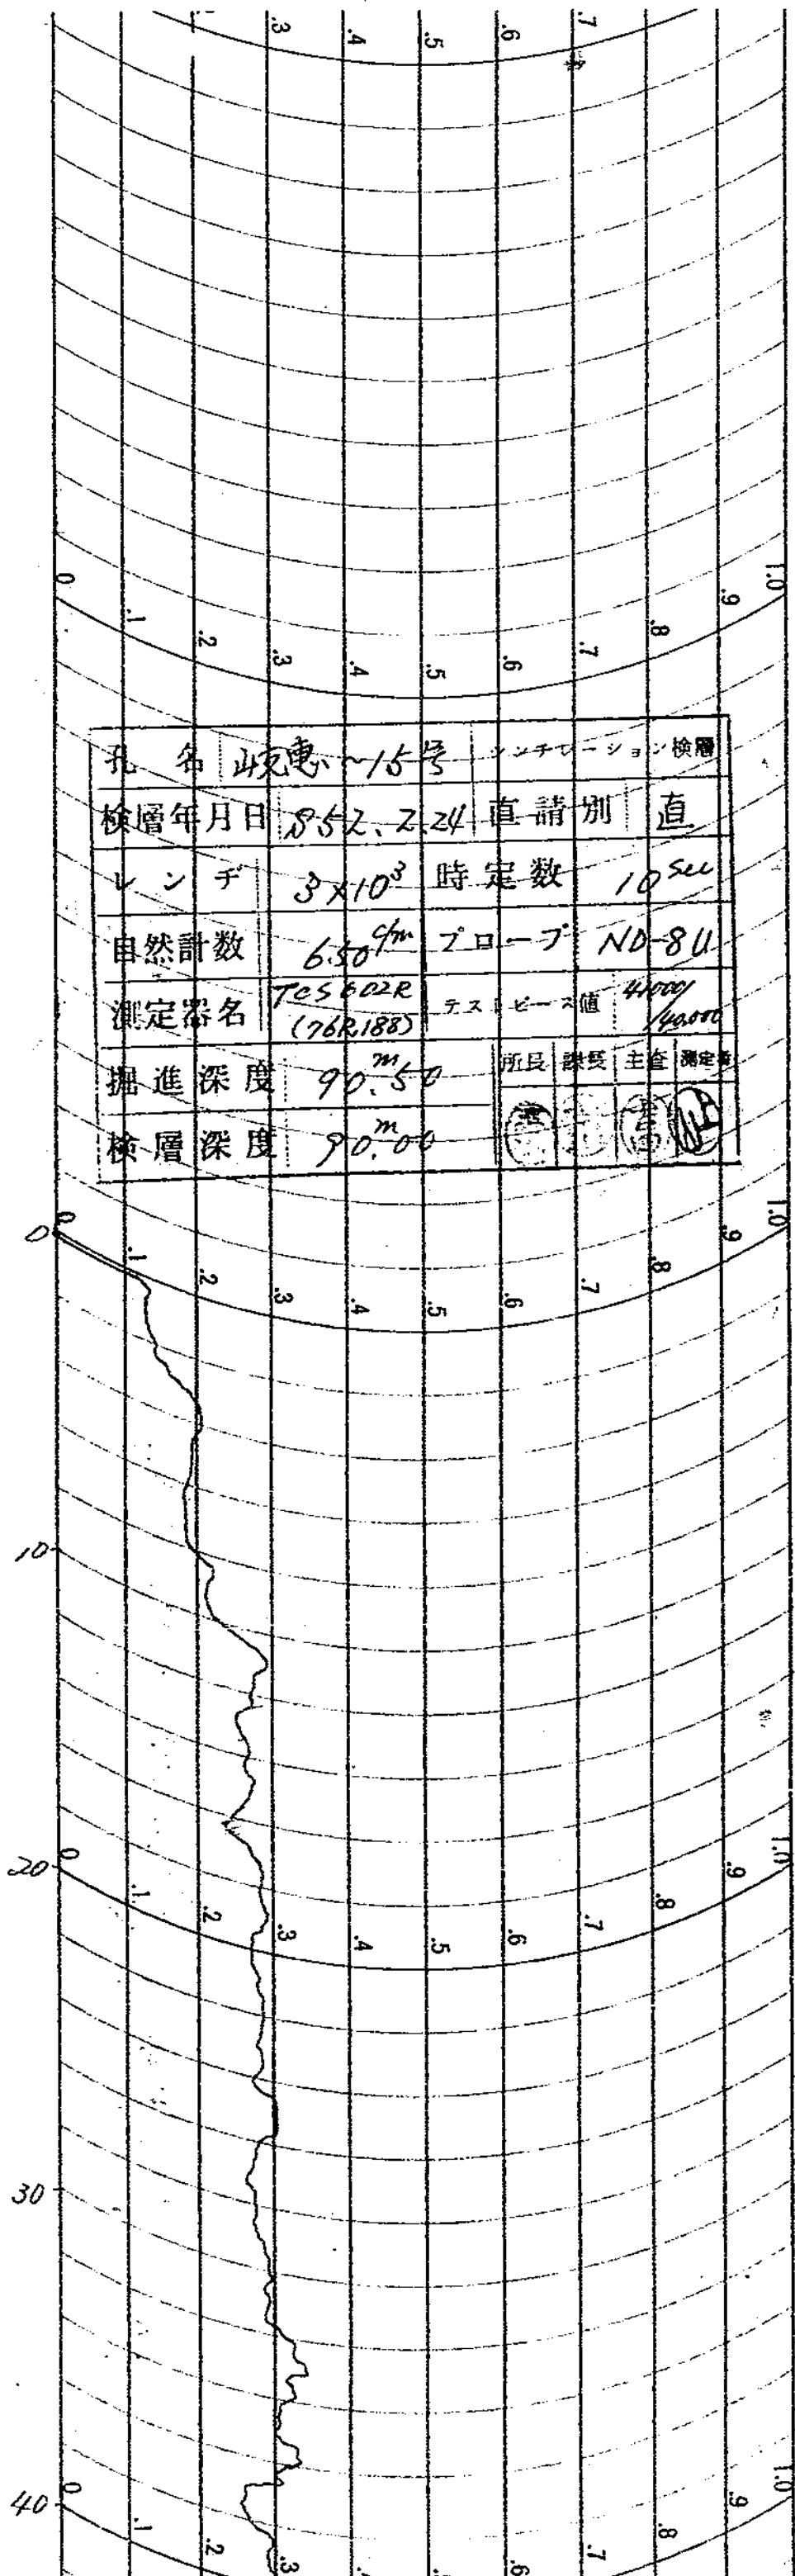 .3 .4 .5 .6 .7
0 .1 .2 .3 .4 .5 .6 .7 .8 .9 1.0
孔名 岐恵~15号 シンチレーション検層
検層年月日 S52.2.24 直請別 直
レンヂ 3×10³ 時定数 10 sec
自然計数 6.50 c/m プローブ ND-8U
測定器名 TCS 602R (76R188) テストピース値 41000/40,000
掘進深度 90.m50 所長 課長 主査 測定者
検層深度 90.m00
0
0 .1 .2 .3 .4 .5 .6 .7 .8 .9 1.0
10
20
0 .1 .2 .3 .4 .5 .6 .7 .8 .9 1.0
30
40
0 .1 .2 .3 .6 .7 .8 .9 1.0